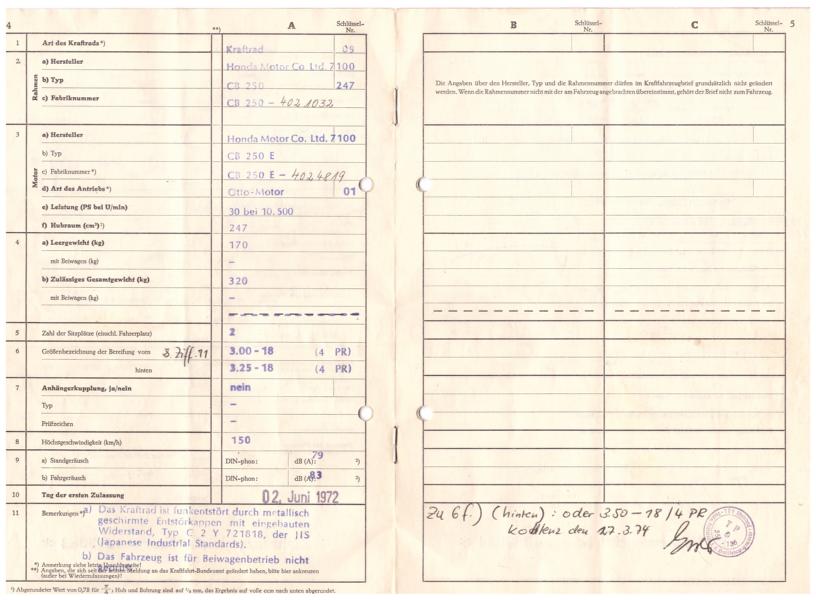 4
**)
A
Schlüssel-
Nr.
1 Art des Kraftrads*) Kraftrad 09
2. Rahmen a) Hersteller Honda Motor Co Ltd. 7100
b) Typ CB 250 247
c) Fabriknummer CB 250 - 4021032
3 Motor a) Hersteller Honda Motor Co. Ltd. 7100
b) Typ CB 250 E
c) Fabriknummer*) CB 250 E - 4024819
d) Art des Antriebs*) Otto-Motor 01
e) Leistung (PS bei U/min) 30 bei 10.500
f) Hubraum (cm³)¹) 247
4 a) Leergewicht (kg) 170
mit Beiwagen (kg) –
b) Zulässiges Gesamtgewicht (kg) 320
mit Beiwagen (kg) –
5 Zahl der Sitzplätze (einschl. Fahrerplatz) 2
6 Größenbezeichnung der Bereifung vorn s. Ziff. 11 3.00 - 18 (4 PR)
hinten 3.25 - 18 (4 PR)
7 Anhängerkupplung, ja/nein nein
Typ –
Prüfzeichen –
8 Höchstgeschwindigkeit (km/h) 150
9 a) Standgeräusch DIN-phon: dB (A): 79 ²)
b) Fahrgeräusch DIN-phon: dB (A): 83 ²)
10 Tag der ersten Zulassung 02. Juni 1972
11 Bemerkungen *) a) Das Kraftrad ist funkentstört durch metallisch
geschirmte Entstörkappen mit eingebauten
Widerstand, Typ C 2 Y 721818, der JIS
(Japanese Industrial Standards).
b) Das Fahrzeug ist für Beiwagenbetrieb nicht
*) Anmerkung siehe letzte
**) Angaben, die sich seit der letzten Meldung an das Kraftfahrt-Bundesamt geändert haben, bitte hier ankreuzen
(außer bei Wiederzulassungen)!
¹) Abgerundeter Wert von 0,78 für π/4; Hub und Bohrung sind auf ¹/₂ mm, das Ergebnis auf volle ccm nach unten abgerundet.
B
Schlüssel-
Nr.
C
Schlüssel-
Nr.
5
Die Angaben über den Hersteller, Typ und die Rahmennummer dürfen im Kraftfahrzeugbrief grundsätzlich nicht geändert
werden. Wenn die Rahmennummer nicht mit der am Fahrzeug angebrachten übereinstimmt, gehört der Brief nicht zum Fahrzeug.
Zu 6f.) (hinten) : oder 3.50 – 18 / 4 PR
Koblenz den 27.3.74